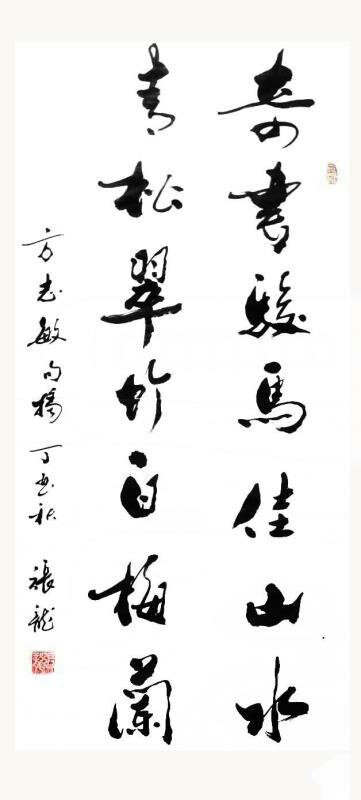 奇書駿馬佳山水
青松翠竹白梅蘭
方志敏句 丁 秋 張龍